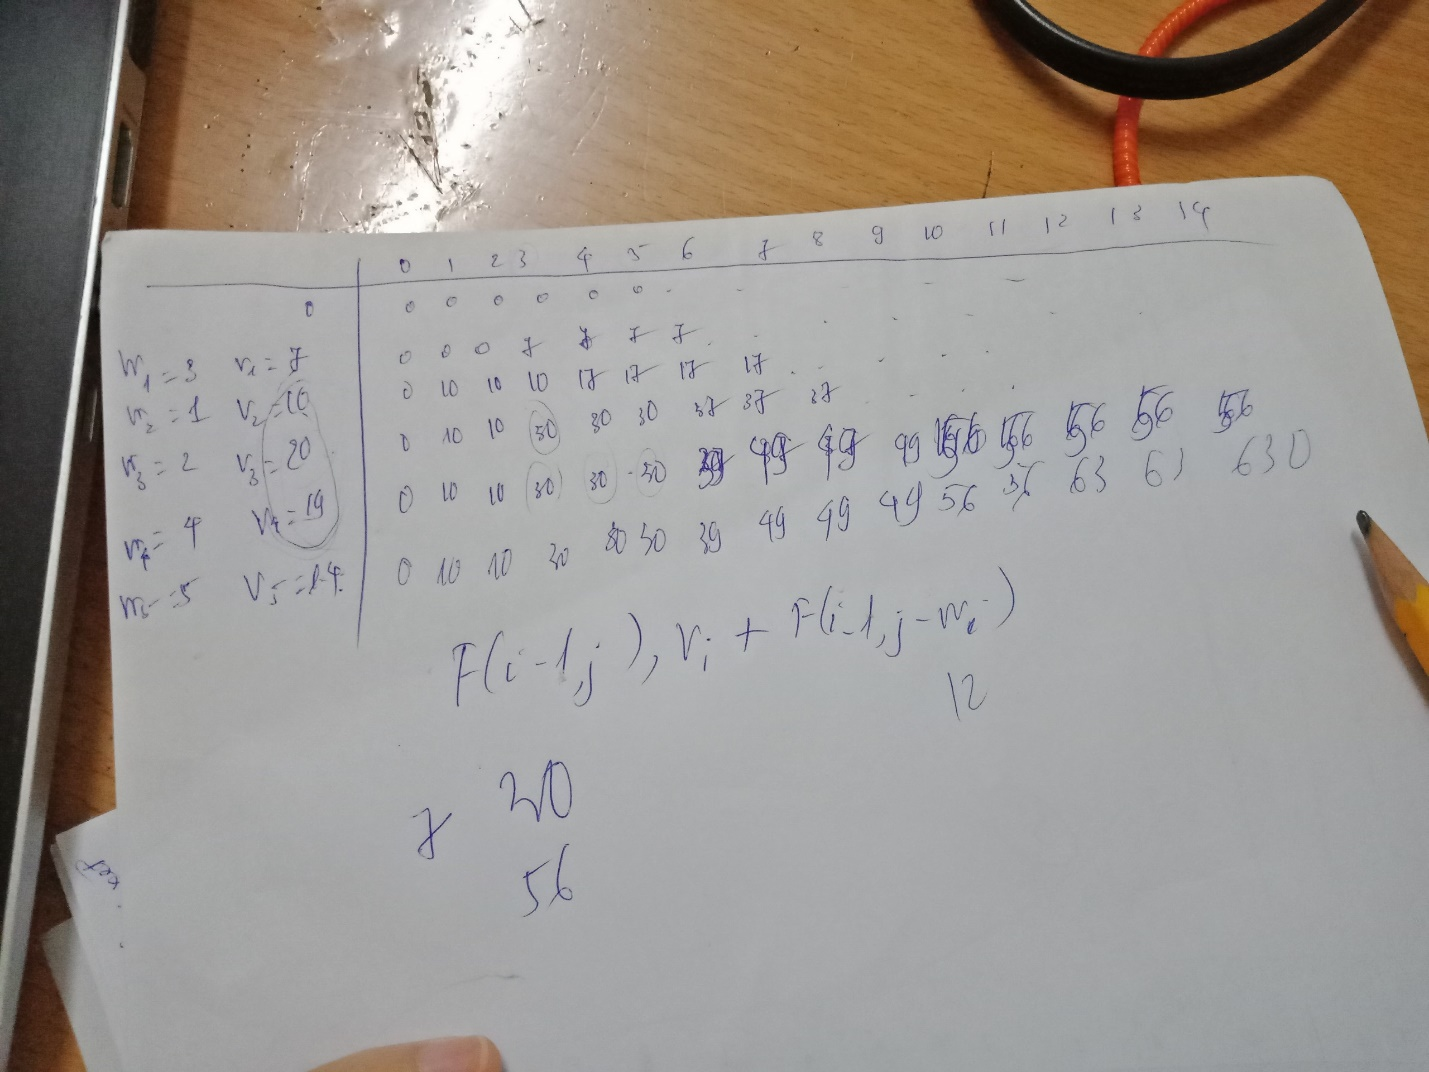 0 1 2 3 4 5 6 7 8 9 10 11 12 13 14
0 0 0 0 0 0 0 . - . . - -
w₁=3 v₁=7 0 0 0 7 7 7 7 . . . . . .
w₂=1 v₂=10 0 10 10 10 17 17 17 17 . . . . .
w₃=2 v₃=20 0 10 10 30 30 30 37 37 37 . . . .
w₄=4 v₄=19 0 10 10 30 30 30 39 49 49 49 56 56 56 56 56
w₅=5 v₅=14 0 10 10 30 30 30 39 49 49 49 56 56 63 63 630
F(i-1,j), vᵢ + F(i-1,j-wᵢ)
12
7 20
56